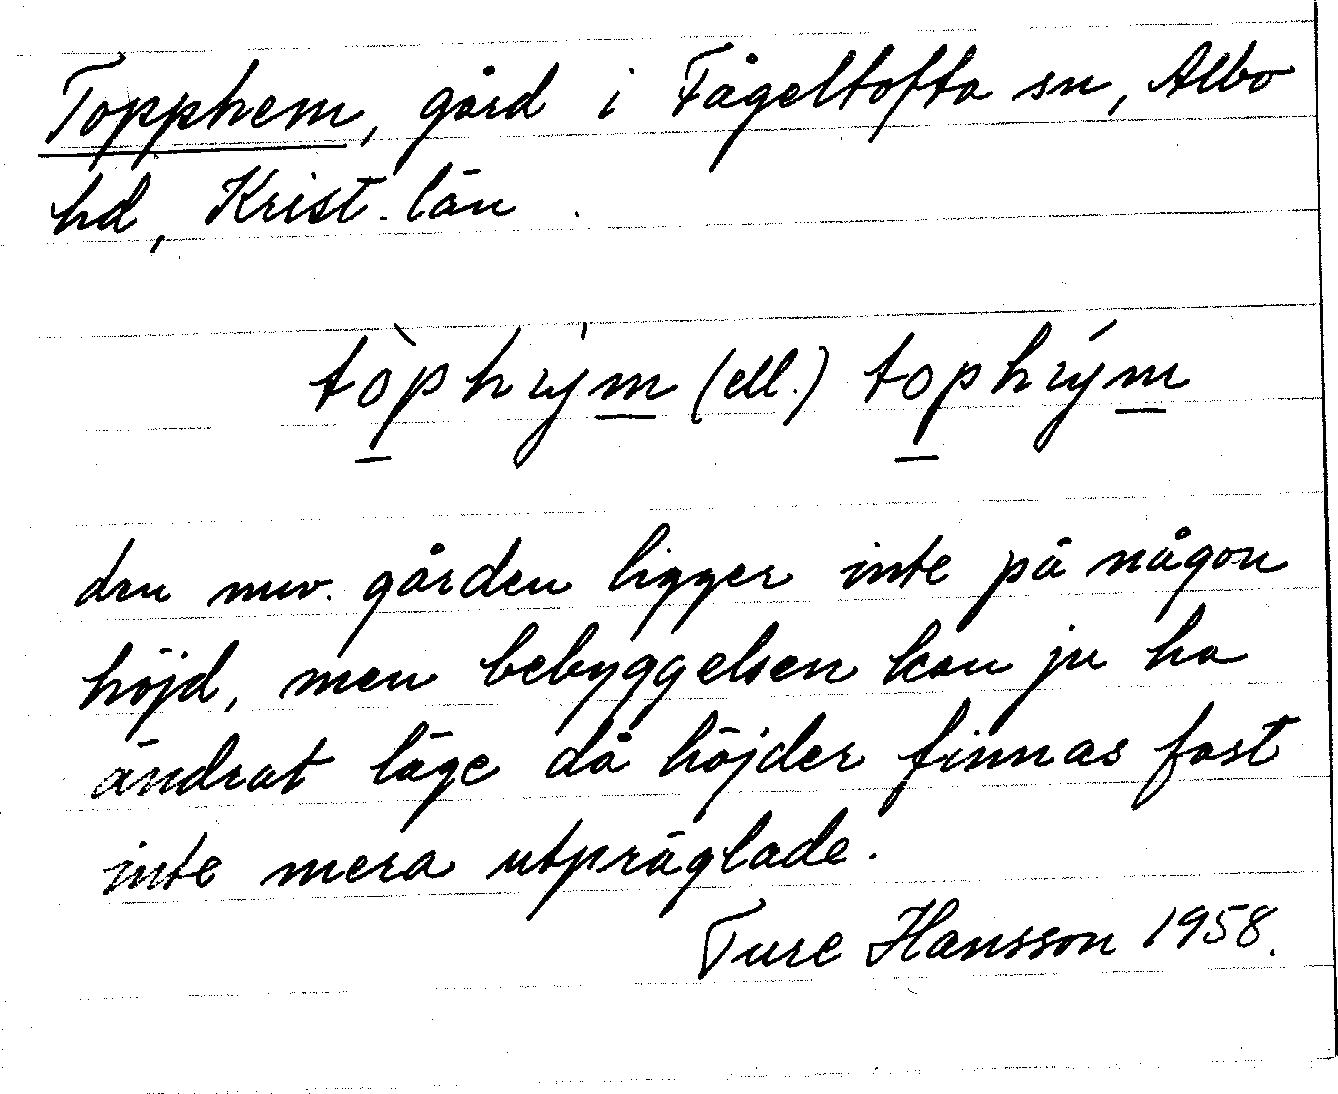 Topphem, gård i Fågeltofta sn, Albo
hd, Krist. län.
tòphým (ell.) tophým
den nuv. gården ligger inte på någon
höjd, men bebyggelsen kan ju ha
ändrat läge då höjder finnas fast
inte mera utpräglade.
Ture Hansson 1958.